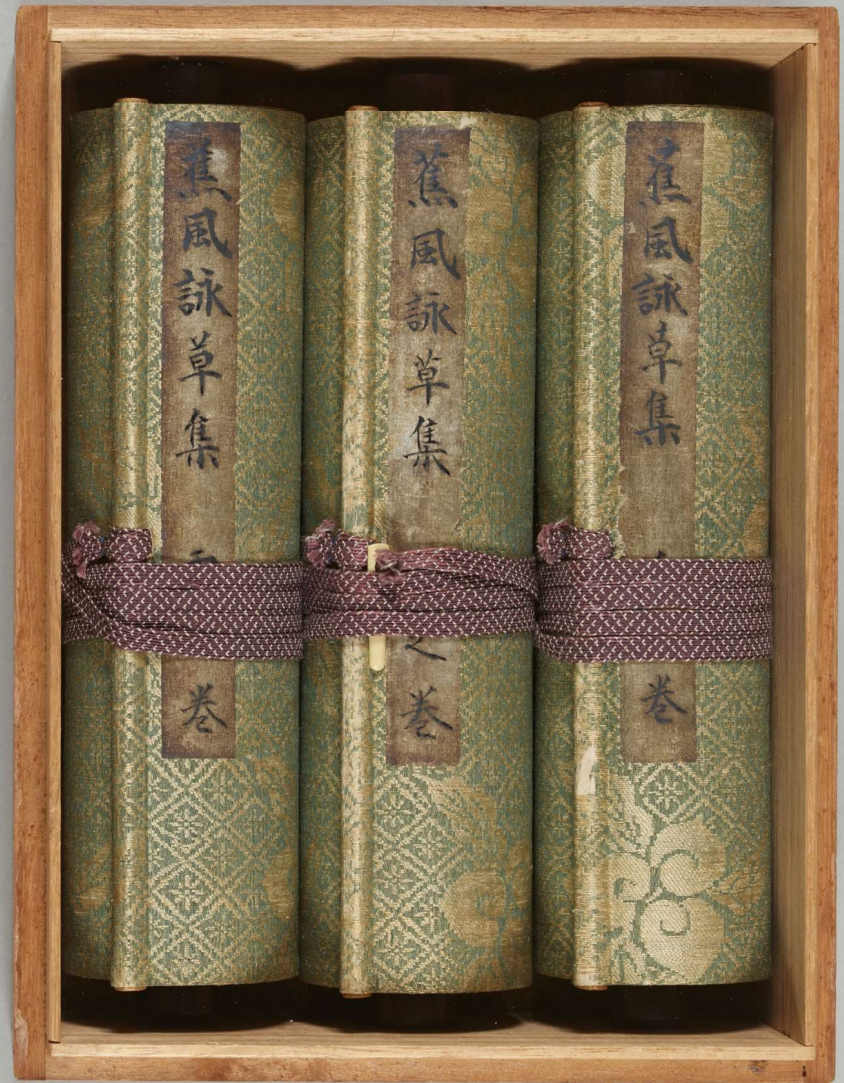 蕉風詠草集 巻
蕉風詠草集 之巻
蕉風詠草集 巻